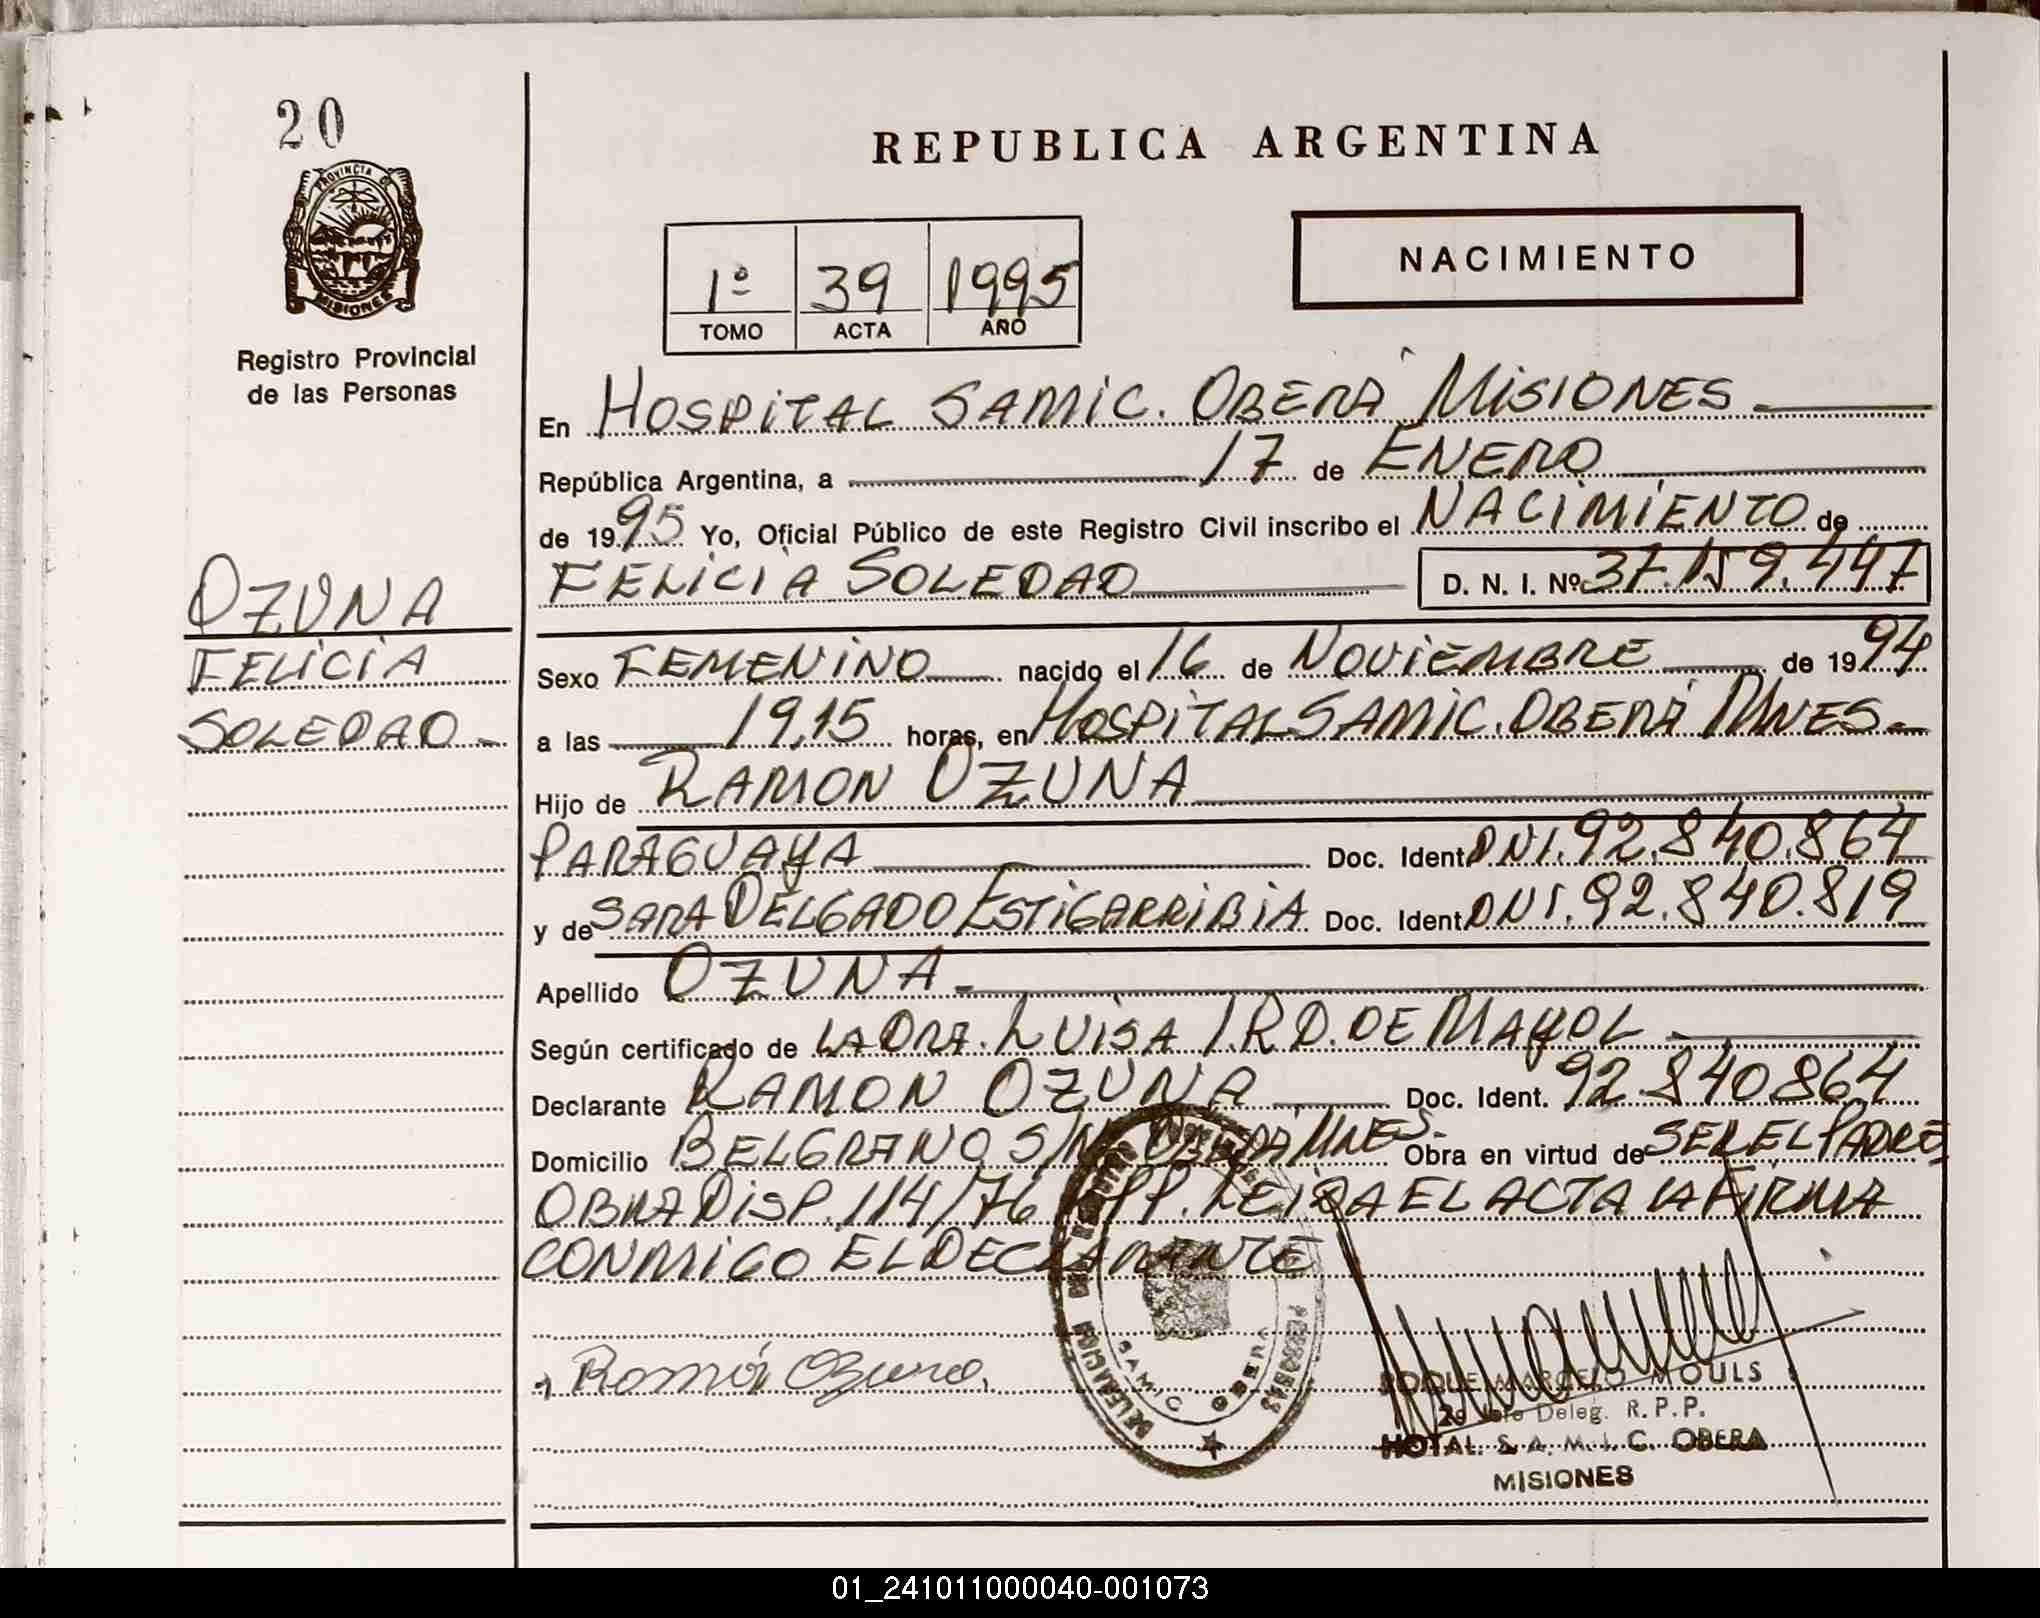 20
PROVINCIA DE
MISIONES
Registro Provincial
de las Personas
OZUNA
FELICIA
SOLEDAD -
REPUBLICA ARGENTINA
NACIMIENTO
1º 39 1995
TOMO ACTA AÑO
En HOSPITAL SAMIC. OBERA MISIONES
República Argentina, a 17 de ENERO
de 1995 Yo, Oficial Público de este Registro Civil inscribo el NACIMIENTO de
FELICIA SOLEDAD D. N. I. Nº 37.159.447
Sexo FEMENINO nacido el 16 de NOVIEMBRE de 1994
a las 19,15 horas, en HOSPITAL SAMIC. OBERÁ MNES-
Hijo de RAMON OZUNA
PARAGUAYA Doc. Ident. DNI. 92.840.864
y de SARA DELGADO ESTIGARRIBIA Doc. Ident. DNI. 92.840.819
Apellido OZUNA-
Según certificado de LA DRA. LUISA I.R.D. DE MAYOL
Declarante RAMON OZUNA Doc. Ident. 92.840864
Domicilio BELGRANO S/Nº OBERA MNES. Obra en virtud de SER EL PADRE,
OBRA DISP. 114/76 RPP. LEIDA EL ACTA LA FIRMA
CONMIGO EL DECLARANTE
Ramón Ozuna.
DELEGACION
PERSONAS
SAMIC OBERA
ROQUE MARCELO MOULS
2º Jefe Deleg. R.P.P.
HOTAL. S. A. M. I. C. OBERA
MISIONES
01_241011000040-001073